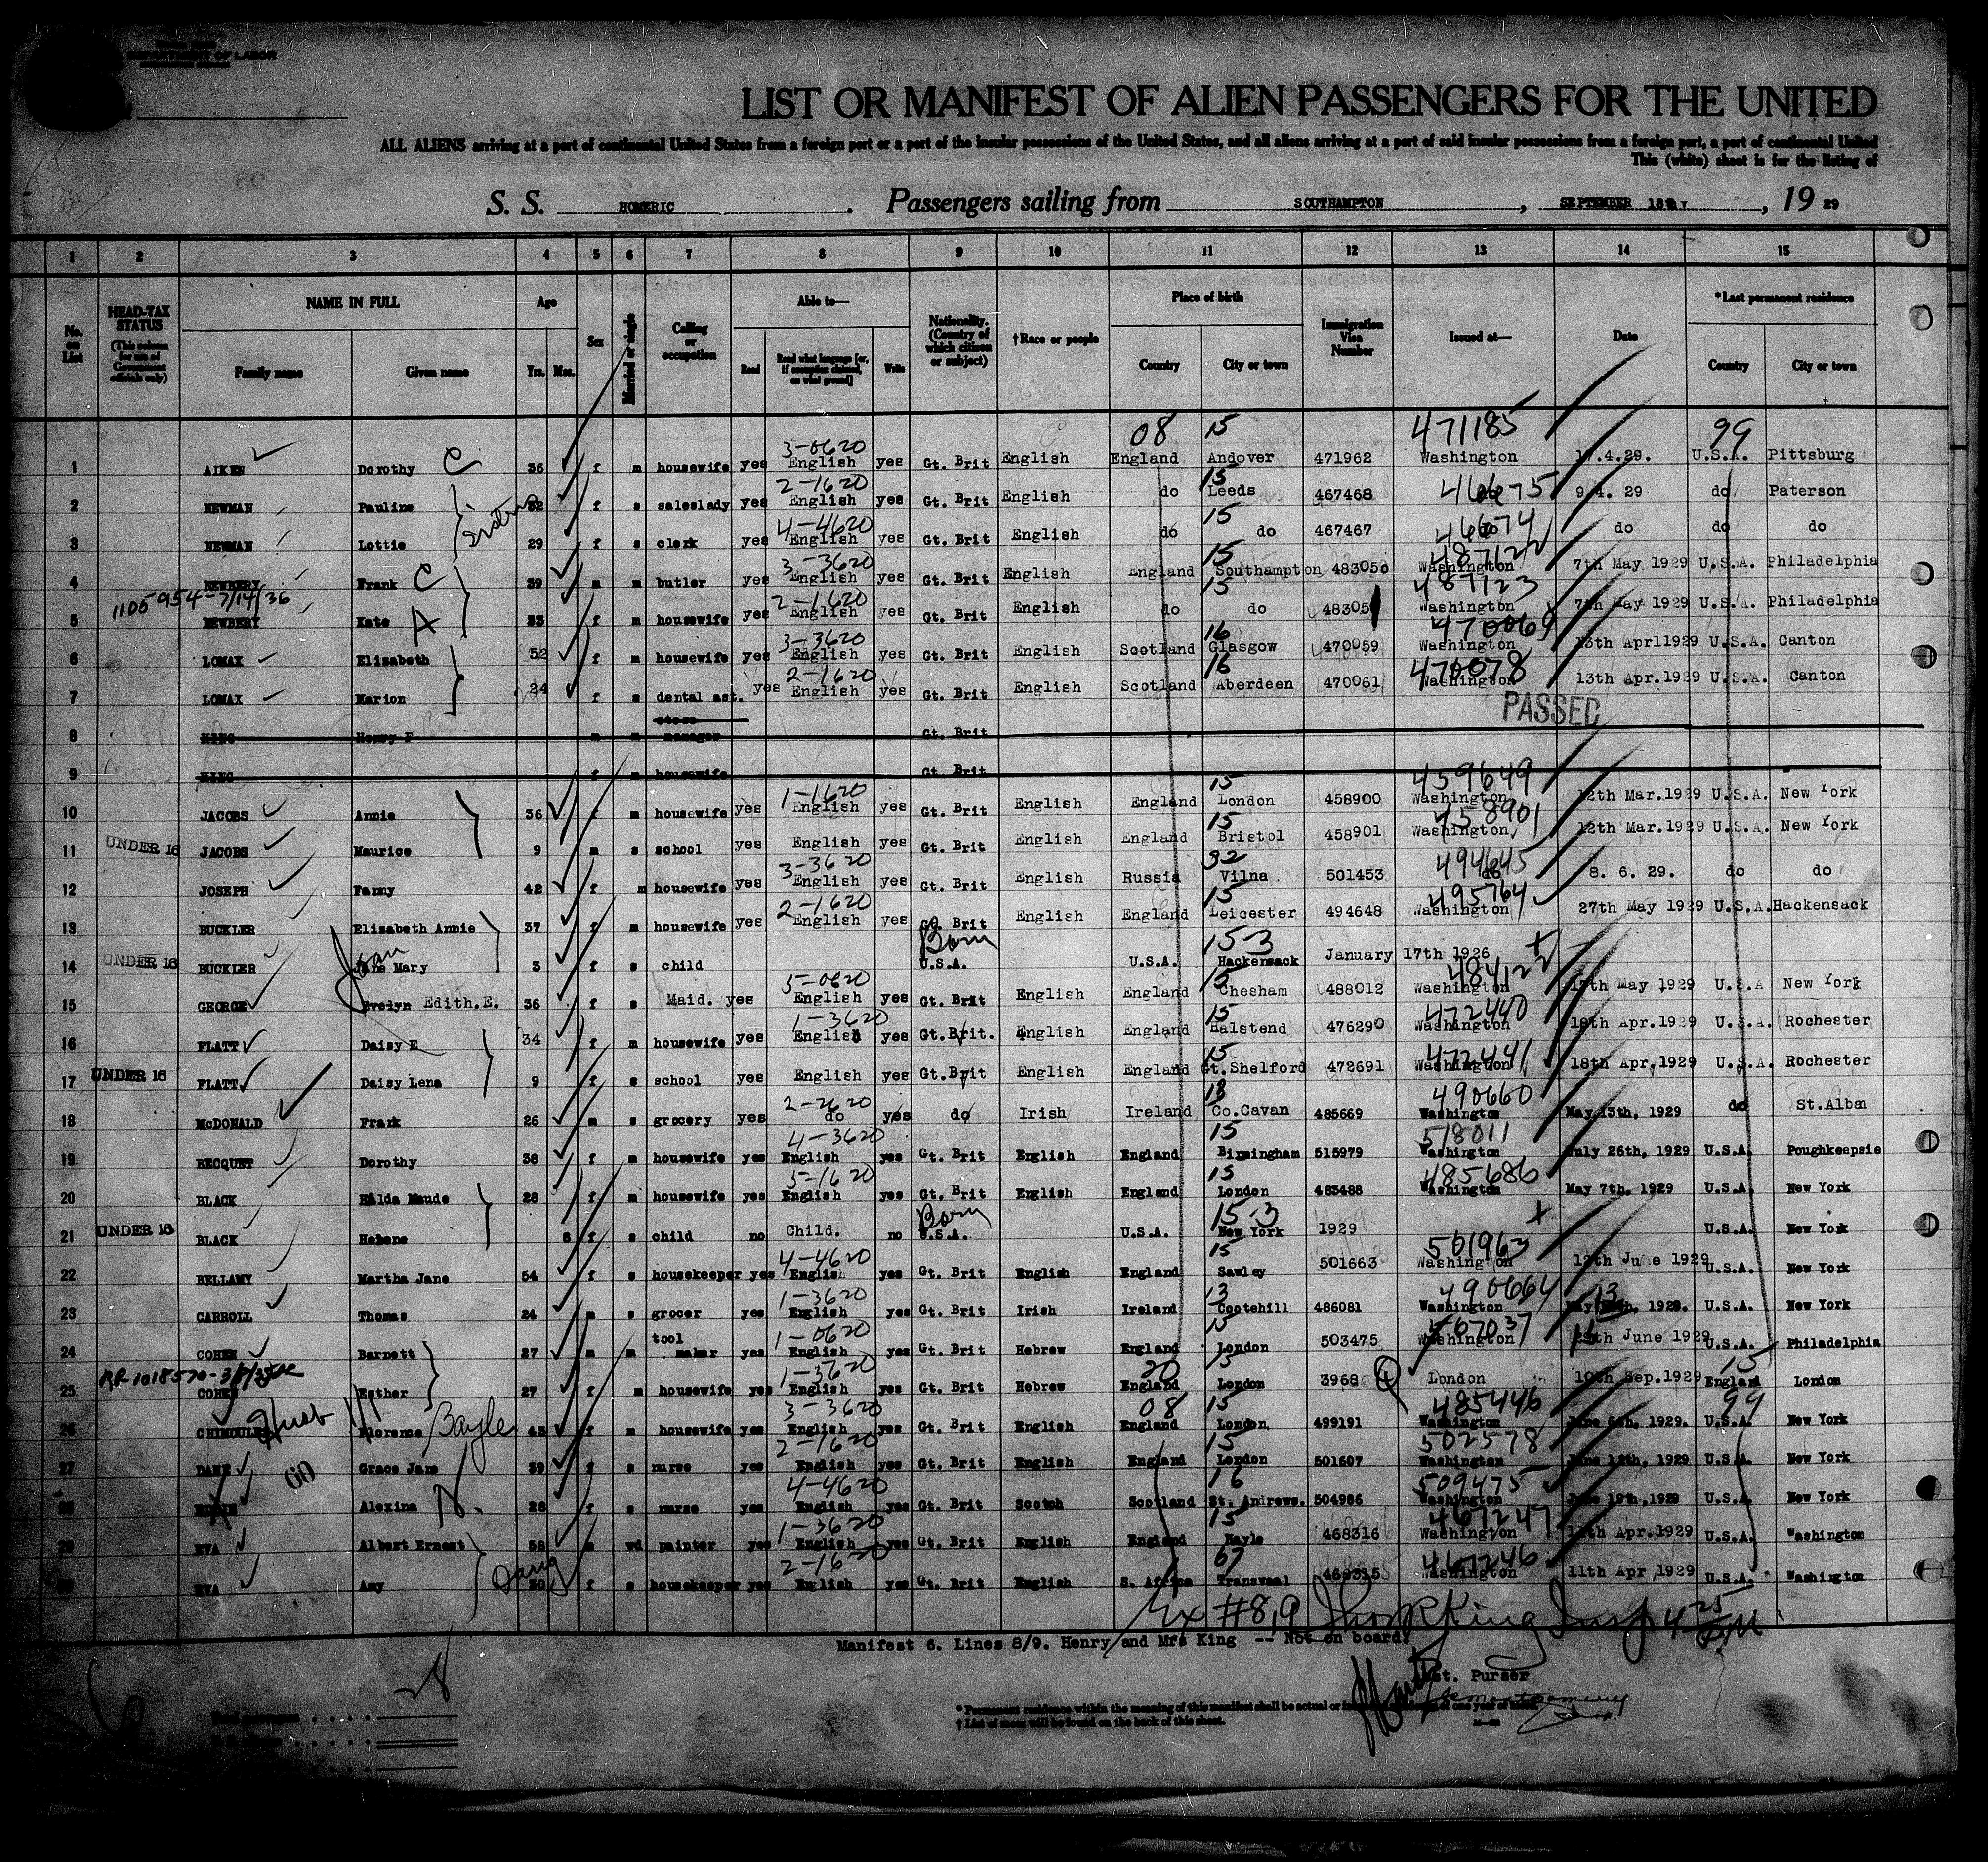 DEPARTMENT OF LABOR
LIST OR MANIFEST OF ALIEN PASSENGERS FOR THE UNITED
ALL ALIENS arriving at a port of continental United States from a foreign port or a port of the insular possessions of the United States, and all aliens arriving at a port of said insular possessions from a foreign port, a port of continental United
This (white) sheet is for the listing of
S. S. HOMERIC. Passengers sailing from SOUTHAMPTON, SEPTEMBER 18, 19 29
1 2 3 4 5 6 7 8 9 10 11 12 13 14 15
No. on List
HEAD-TAX STATUS (This column for use of Government officials only)
NAME IN FULL Family name Given name
Age Yrs. Mos.
Sex
Married or single
Calling or occupation
Able to— Read Read what language [or, if exemption claimed, on what ground] Write
Nationality. (Country of which citizen or subject)
†Race or people
Place of birth Country City or town
Immigration Visa Number
Issued at—
Date
*Last permanent residence Country City or town
08 15 471185 99
1 AIKEN Dorothy C 36 f m housewife yes 3-0620 English yes Gt. Brit English England Andover 471962 Washington .4.29. U.S.A. Pittsburg
2 NEWMAN Pauline 32 f s saleslady yes 2-1620 English yes Gt. Brit English do 15 Leeds 467468 9.4. 29 do Paterson
3 NEWMAN Lottie 29 f s clerk yes 4-4620 English yes Gt. Brit English do 15 do 467467 46674 do do do
4 NEWBERY Frank C 39 m m butler yes 3-3620 English yes Gt. Brit English England 15 Southampton 483050 487122 Washington 7th May 1929 U.S.A. Philadelphia
1105954-7/14/36
5 NEWBERY Kate A 33 f m housewife yes 2-1620 English yes Gt. Brit English do 15 do 483051 487123 Washington 7th May 1929 U.S.A. Philadelphia
6 LOMAX Elizabeth 52 f m housewife yes 3-3620 English yes Gt. Brit English Scotland 16 Glasgow 470059 470069 Washington 13th April1929 U.S.A. Canton
7 LOMAX Marion 24 f s dental ast. yes 2-1620 English yes Gt. Brit English Scotland 16 Aberdeen 470061 470078 Washington 13th Apr.1929 U.S.A. Canton
PASSED
8 KING Henry F m m manager Gt. Brit
9 KING f m housewife Gt. Brit
10 JACOBS Annie 36 f m housewife yes 1-1620 English yes Gt. Brit English England 15 London 458900 459649 Washington 12th Mar.1929 U.S.A. New York
11 UNDER 16 JACOBS Maurice 9 m s school yes English yes Gt. Brit English England 15 Bristol 458901 458901 Washington 12th Mar.1929 U.S.A. New York
12 JOSEPH Fanny 42 f m housewife yes 3-3620 English yes Gt. Brit English Russia 32 Vilna 501453 494645 do 8. 6. 29. do do
13 BUCKLER Elizabeth Annie 37 f m housewife yes 2-1620 English yes Gt. Brit English England 15 Leicester 494648 495764 Washington 27th May 1929 U.S.A. Hackensack
14 UNDER 16 BUCKLER Jean Mary 3 f s child Born U.S.A. U.S.A. 15-3 Hackensack January 17th 1926
15 GEORGE Evelyn Edith.E. 36 f s Maid. yes 5-0620 English yes Gt. Brit English England 15 Chesham 488012 484122 Washington May 1929 U.S.A New York
16 FLATT Daisy E 34 f m housewife yes 1-3620 English yes Gt.Brit. English England 15 Halstend 476290 472440 Washington 18th Apr.1929 U.S.A. Rochester
17 UNDER 16 FLATT Daisy Lena 9 f s school yes English yes Gt.Brit English England 15 Gt.Shelford 472691 472441 Washington 18th Apr.1929 U.S.A. Rochester
18 McDONALD Frank 26 m s grocery yes 2-2620 do yes do Irish Ireland 13 Co.Cavan 485669 490660 Washington May 13th, 1929 do St.Alban
19 BECQUET Dorothy 38 f m housewife yes 4-3620 English yes Gt. Brit English England 15 Birmingham 515979 518011 Washington July 26th, 1929 U.S.A. Poughkeepsie
20 BLACK Hilda Maude 28 f m housewife yes 3-1620 English yes Gt. Brit English England 15 London 485488 485686 Washington May 7th, 1929 U.S.A. New York
21 UNDER 16 BLACK Helene 8 f s child no Child. no Born U.S.A. U.S.A. 15-3 New York 1929 U.S.A. New York
22 BELLAMY Martha Jane 54 f s housekeeper yes 4-4620 English yes Gt. Brit English England 15 Sawley 501663 501963 Washington 12th June 1929 U.S.A. New York
23 CARROLL Thomas 24 m s grocer yes 1-3620 English yes Gt. Brit Irish Ireland 13 Cootehill 486081 490664 Washington May 13, 1929. U.S.A. New York
24 COHEN Barnett 27 m m tool maker yes 1-0620 English yes Gt. Brit Hebrew England 15 London 503475 507037 Washington June 1929 U.S.A. Philadelphia
25 COHEN Esther 27 f m housewife yes 1-3620 English yes Gt. Brit Hebrew 20 England 15 London 3968 London 10th Sep.1929 15 England London
26 Florence Bayle 43 f m housewife yes 3-3620 English yes Gt. Brit English 08 England 15 London 499191 485446 Washington June 6th, 1929. 99 U.S.A. New York
27 DANE Grace Jane 39 f s nurse yes 2-1620 English yes Gt. Brit English England 15 London 501607 502578 Washington June 12th, 1929 U.S.A. New York
28 Alexina N. 28 f s nurse yes 4-4620 English yes Gt. Brit Scotch Scotland 16 St. Andrews. 504986 509475 Washington June 19th,1929 U.S.A. New York
29 EVA Albert Ernest 58 m wd painter yes 1-3620 English yes Gt. Brit English England 15 Hayle 468316 467247 Washington 11th Apr.1929 U.S.A. Washington
30 EVA Amy Daug 30 f s housekeeper yes 2-1620 English yes Gt. Brit English S. Africa 67 Transvaal 468315 467246 Washington 11th Apr 1929 U.S.A. Washington
Ex #8,9 King Insp 4 25 P.M
Manifest 6. Lines 8/9. Henry and Mrs King -- Not on board.
Asst. Purser
28
* Permanent residence within the meaning of this manifest shall be actual or intended residence of one year or more.
† List of races will be found on the back of this sheet.